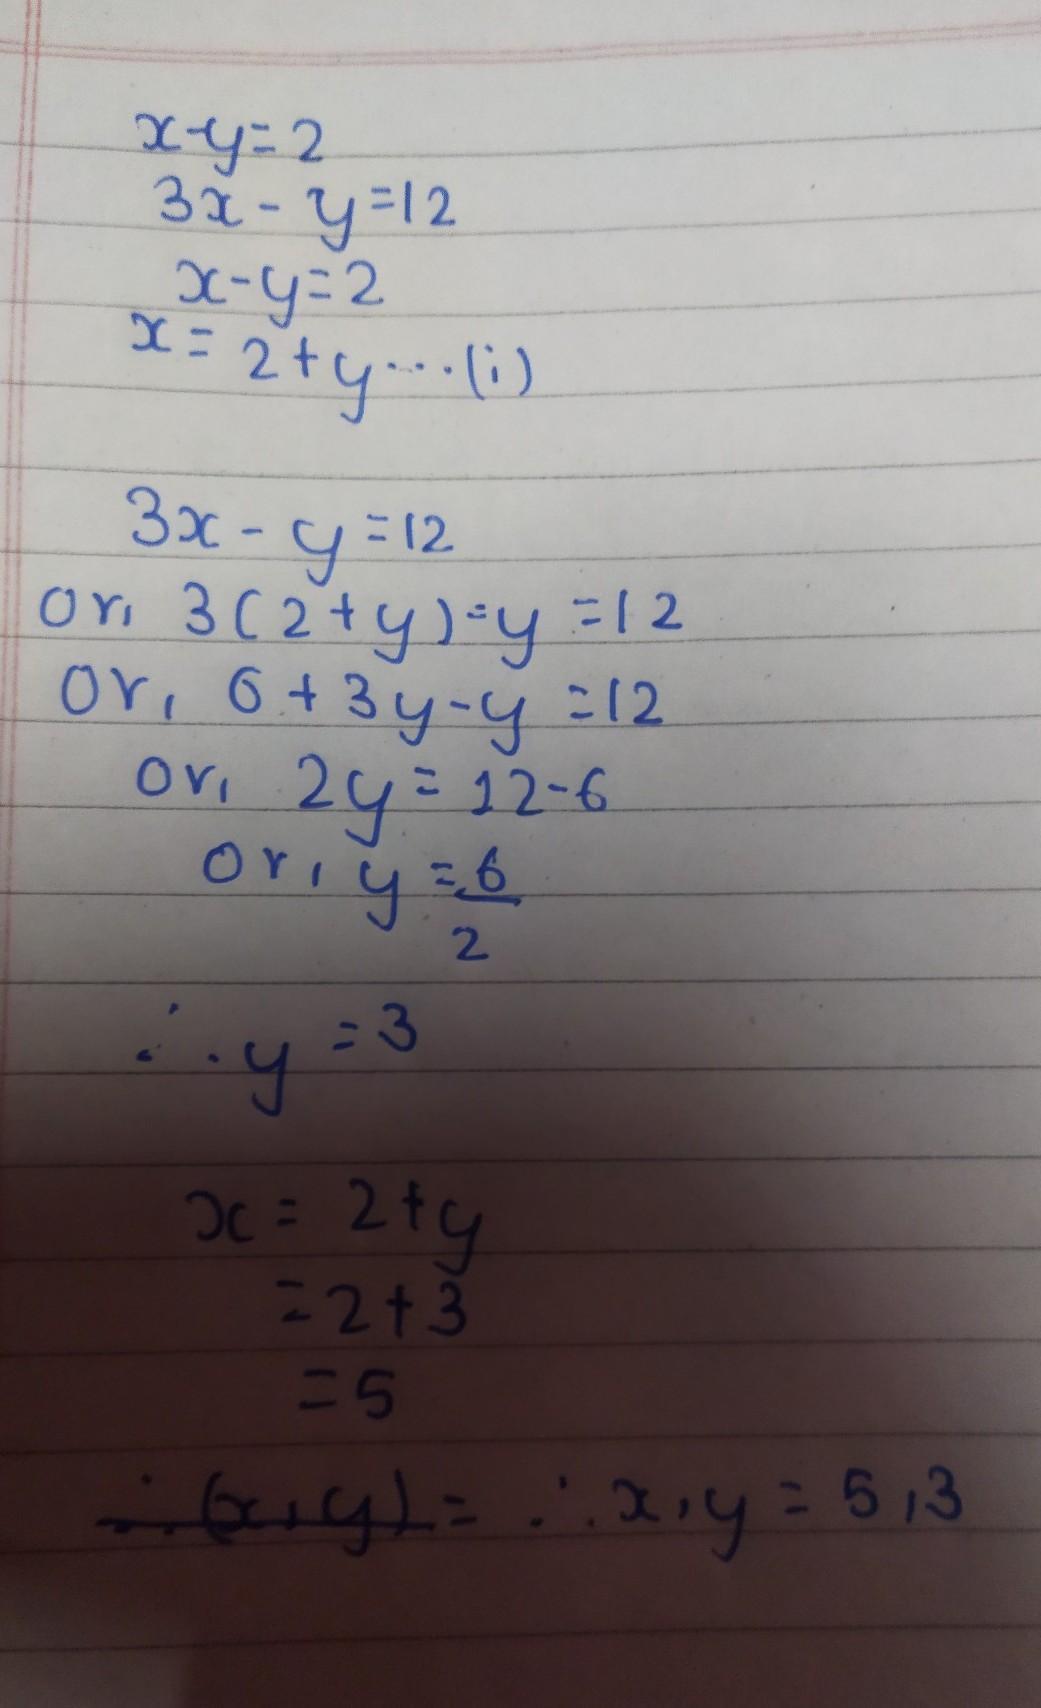 x-y=2
3x - y=12
x-y=2
x= 2+y...(i)
3x - y=12
or, 3(2+y)-y =12
or, 6+3y-y =12
or, 2y= 12-6
or, y = 6/2
∴ y = 3
x = 2+y
= 2+3
= 5
∴ (x,y) = ∴ x,y = 5,3